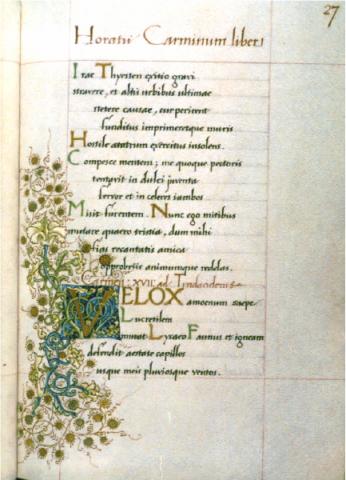 27
Horatii Carminum liber I
Irae Thyesten exitio gravi
stravere, et altis urbibus ultimae
stetere causae, cur perirent
funditus imprimeretque muris
Hostile aratrum exercitus insolens.
Compesce mentem; me quoque pectoris
tentavit in dulci juventa
fervor et in celeres iambos
Misit furentem. Nunc ego mitibus
mutare quaero tristia, dum mihi
fias recantatis amica
opprobriis animumque reddas.
Carmen XVII. ad Tyndaridem
VELOX amoenum saepe
Lucretilem
mutat Lycaeo Faunus et igneam
defendit aestate capellis
usque meis pluviosque ventos.